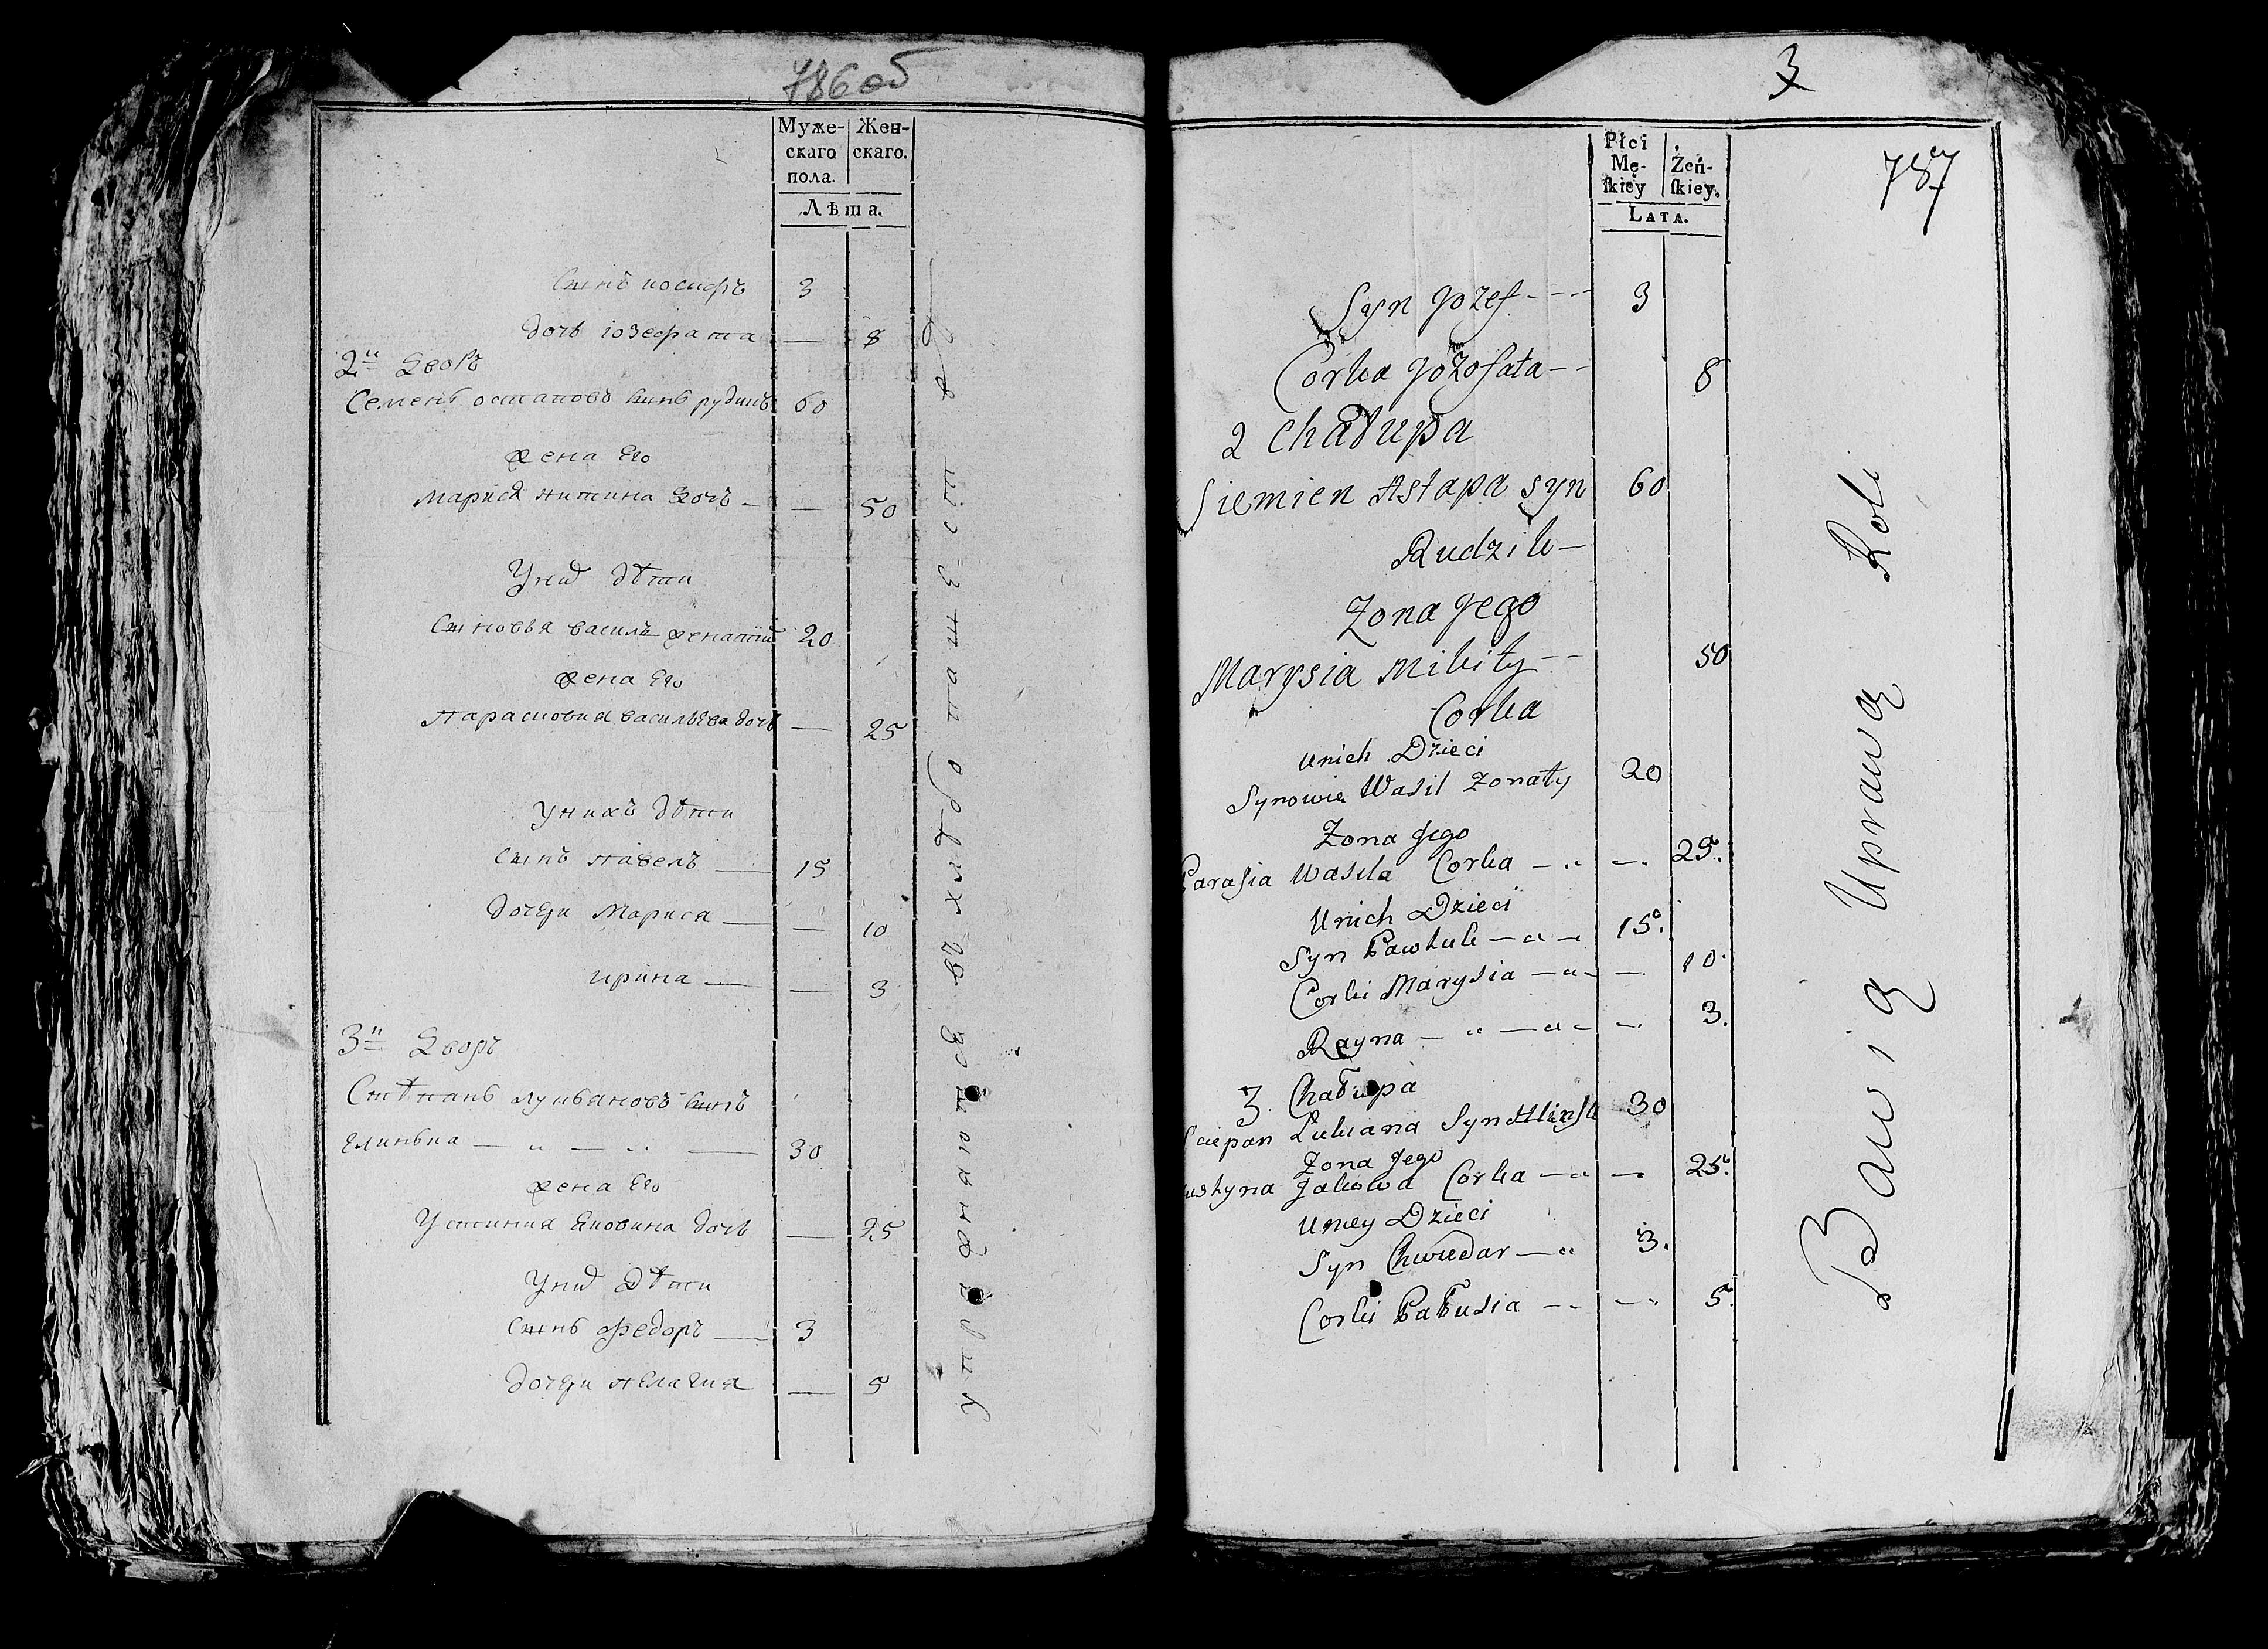 786 об
Муже-
скаго
пола.
Жен-
скаго.
Лѣта.
Сынъ иосифъ 3
дочь иозефата — 8
2й Дворъ
Семенъ остаповъ сынъ рудикъ 60
жена Его
Марися никитина дочь — — 50
У нихъ дѣти
Сыновья василь женатый 20
жена Его
Парасковия васильева дочь — 25
У нихъ дѣти
Сынъ павелъ — 15
дочери Марися — — 10
ирина — — 3
3й Дворъ
Стѣпанъ лукьяновъ сынъ
глинька — „ — „ — 30
жена Его
Устиния яковина дочь — 25
У нихъ Дѣти
Сынъ федоръ — 3
дочери пелагия — 5
3
787
Płci
Mę-
ſkiey
Żeń-
ſkiey.
LATA.
Syn Jozef - - - 3
Corka Jozofata - - 8
2 Chałupa
Siemien Astapa Syn 60
Rudzik —
Zona Jego
Marysia Mikity - - 50
Corka
Unich Dzieci
Synowie Wasil Zonaty 20
Zona Jego
Parasia Wasila Corka — „ — 25.
Unich Dzieci
Syn Pawluk — „ — 15.
Corki Marysia — „ — — 10.
Rayna — „ — „ — — 3.
3. Chałupa
Sciepan Lukiana Syn Hlinka 30
Zona Jego
Justyna Jakowa Corka — „ — 25.
Uniey Dzieci
Syn Chwiedar — „ 3.
Corki Pałusia — — 5.
Bawią Uprawą Roli